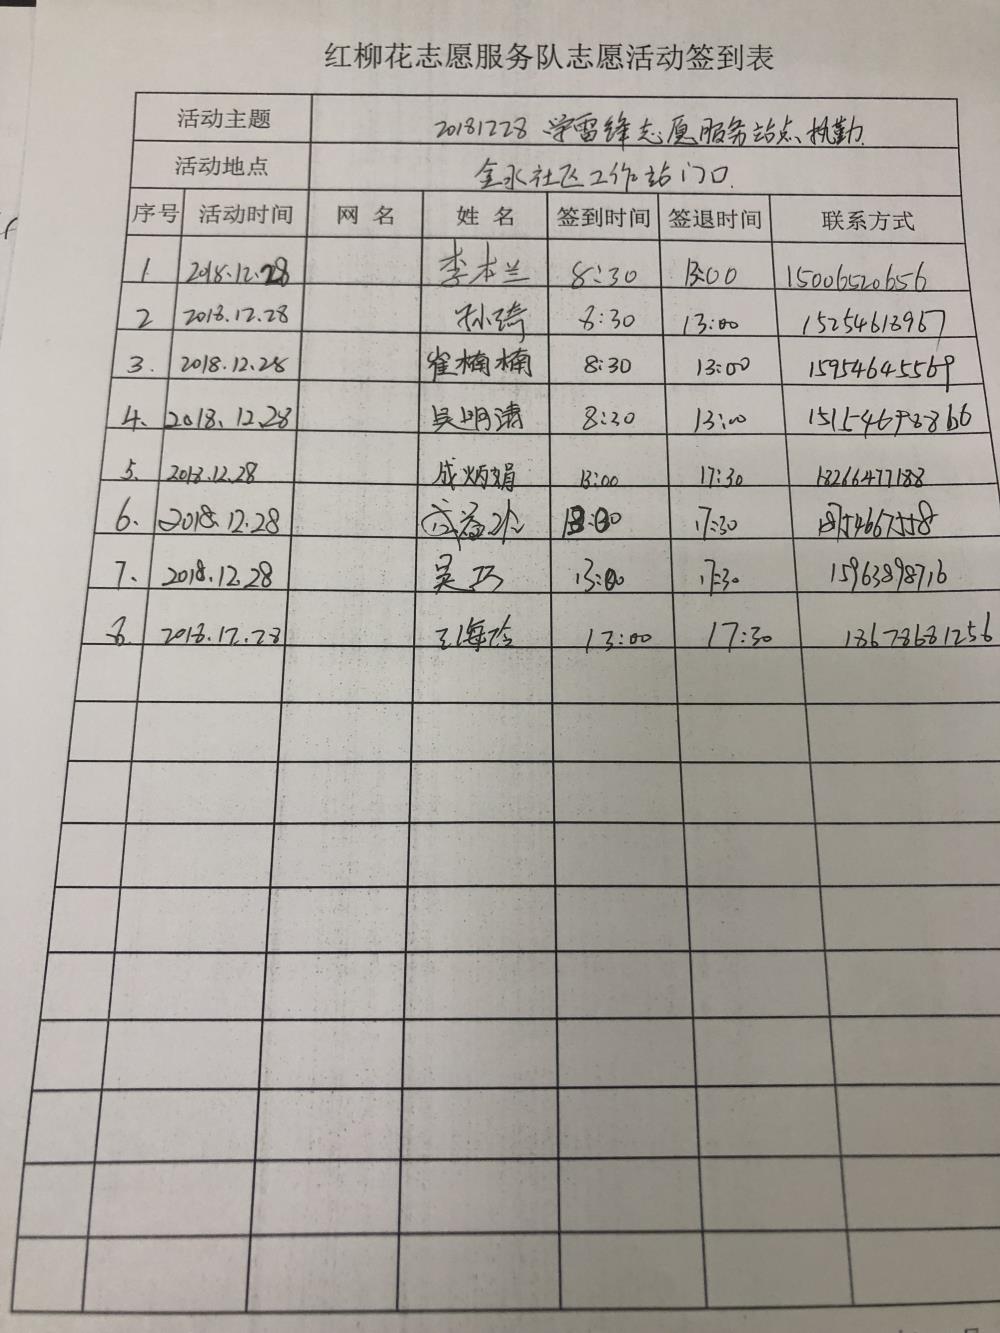 红柳花志愿服务队志愿活动签到表
活动主题 20181228 学雷锋志愿服务站点执勤
活动地点 金水社区工作站门口
序号 活动时间 网 名 姓 名 签到时间 签退时间 联系方式
1 2018.12.28 李本兰 8:30 13:00 15006520656
2 2018.12.28 孙琦 8:30 13:00 15254618967
3. 2018.12.28 崔楠楠 8:30 13:00 15954645569
4. 2018.12.28 吴明涛 8:30 13:00
5. 2018.12.28 成炳娟 13:00 17:30 18266477188
6. 2018.12.28 13:00 17:30 18754667558
7. 2018.12.28 吴巧 13:00 17:30 15963898716
8. 2018.12.28 王海玲 13:00 17:30 18678681256